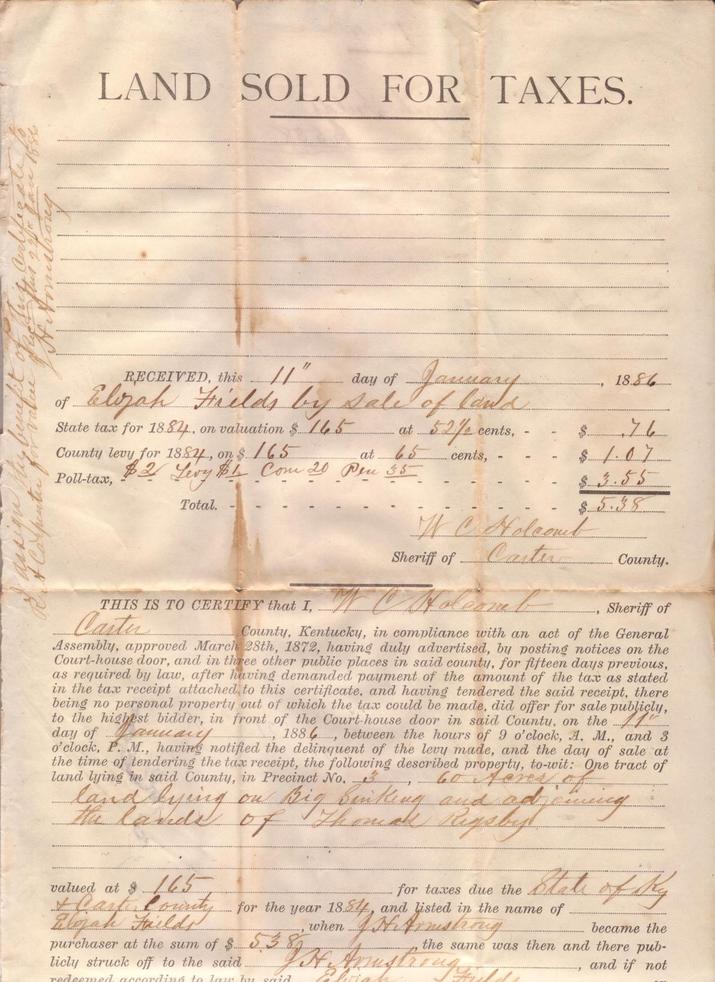 LAND SOLD FOR TAXES.
I assign the benefit of this certificate to
R. A. Carpenter for value this 22 Jan 1886
J H Armstrong
RECEIVED, this 11" day of January, 1886
of Elijah Fields by sale of land
State tax for 1884, on valuation $ 165 at 52½ cents, - - $ .76
County levy for 1884, on $ 165 at 65 cents, - - - $ 1.07
Poll-tax, $2 Levy $1 Com 20 Pen 35 $ 3.55
Total. - - - - - - - - - - - - $ 5.38
W C Holcomb
Sheriff of Carter County.
THIS IS TO CERTIFY that I, W C Holcomb, Sheriff of
Carter County, Kentucky, in compliance with an act of the General
Assembly, approved March 28th, 1872, having duly advertised, by posting notices on the
Court-house door, and in three other public places in said county, for fifteen days previous,
as required by law, after having demanded payment of the amount of the tax as stated
in the tax receipt attached to this certificate, and having tendered the said receipt, there
being no personal property out of which the tax could be made, did offer for sale publicly,
to the highest bidder, in front of the Court-house door in said County, on the 11"
day of January, 1886, between the hours of 9 o'clock, A. M., and 3
o'clock, P. M., having notified the delinquent of the levy made, and the day of sale at
the time of tendering the tax receipt, the following described property, to-wit: One tract of
land lying in said County, in Precinct No. 3, 60 Acres of
land lying on Big Sinking and adjoining
the lands of Thomas Rigsby
valued at $ 165 for taxes due the State of Ky
& Carter County for the year 1884, and listed in the name of
Elijah Fields, when J H Armstrong became the
purchaser at the sum of $ 5.38, the same was then and there pub-
licly struck off to the said J H Armstrong, and if not
redeemed according to law by said Elijah Fields